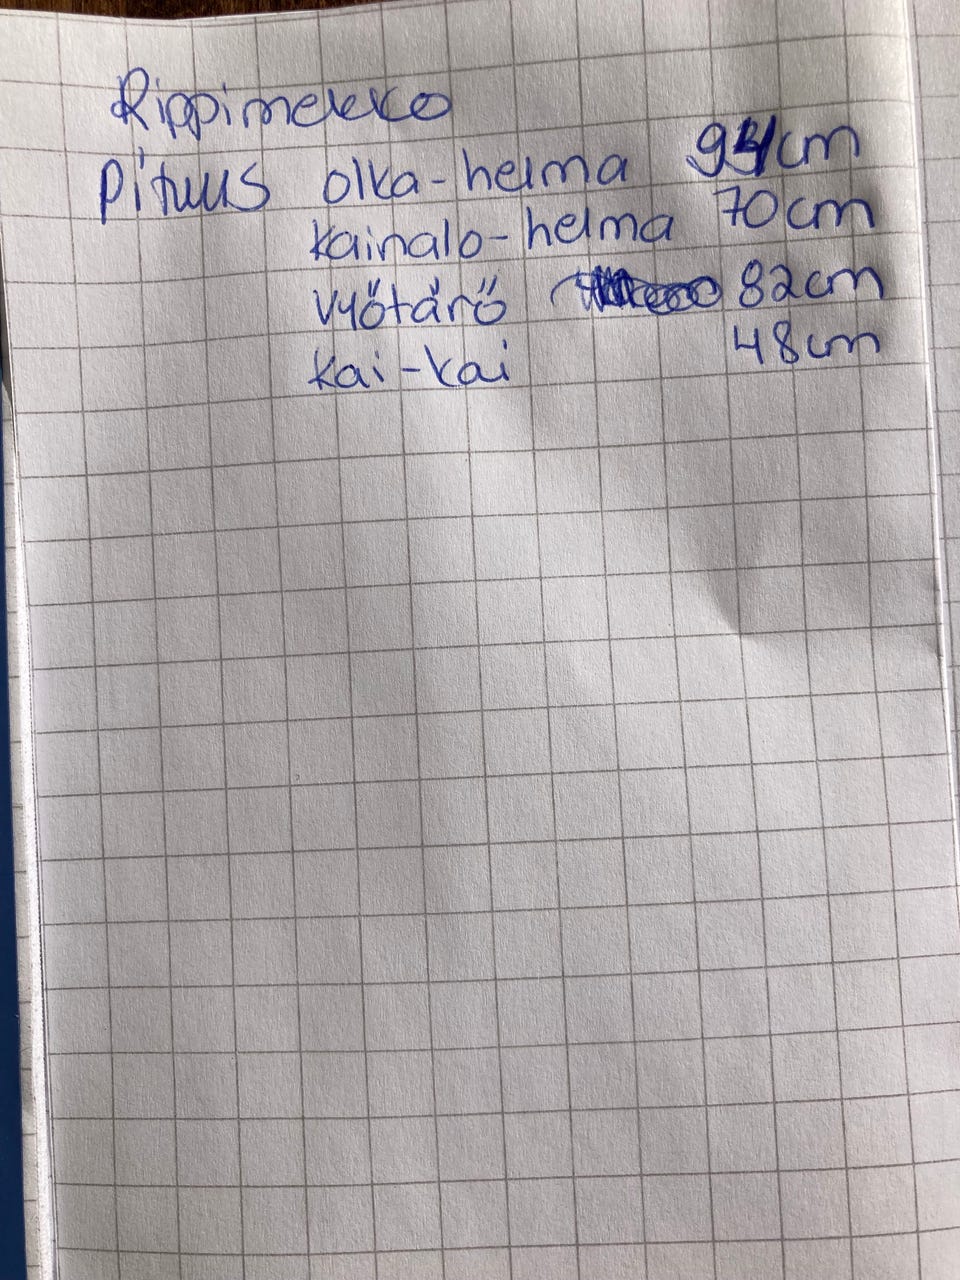 Rippimekko
Pituus olka-helma 94cm
kainalo-helma 70cm
vyötärö 82cm
kai-kai 48cm